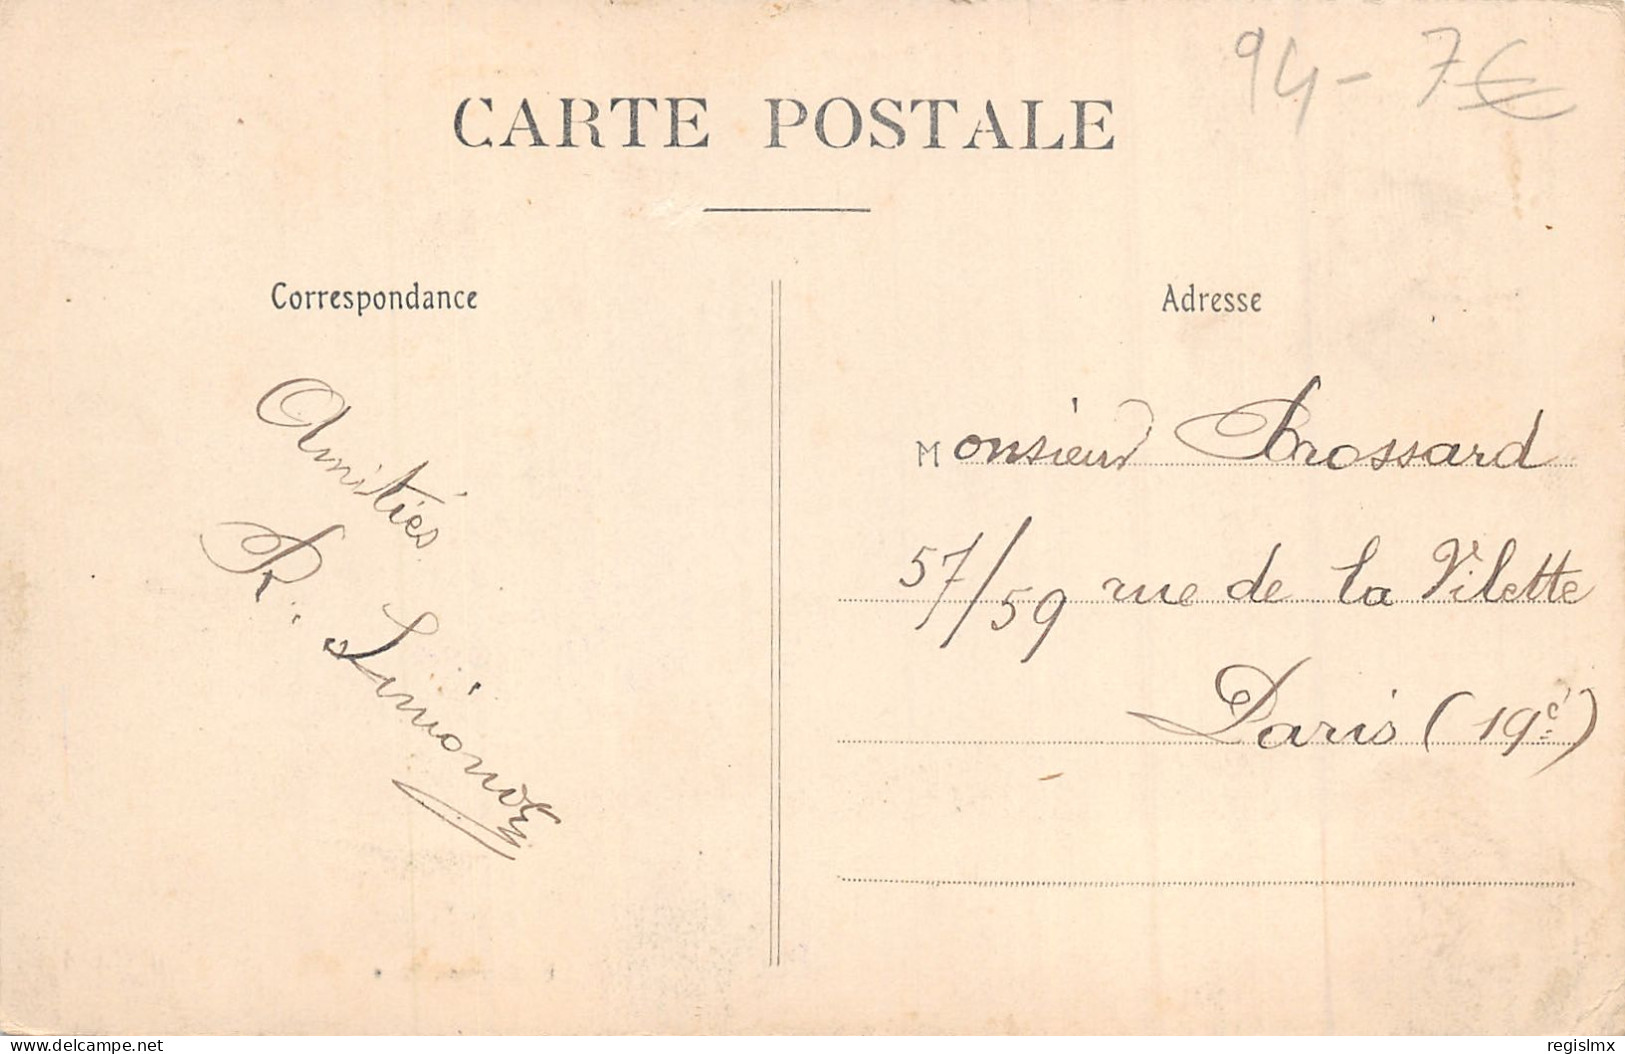 94 - 7€
CARTE POSTALE
Correspondance
Adresse
Amitiés
R. Simonoz
Monsieur Brossard
57/59 rue de la Vilette
Paris (19e)
www.delcampe.net
regislmx